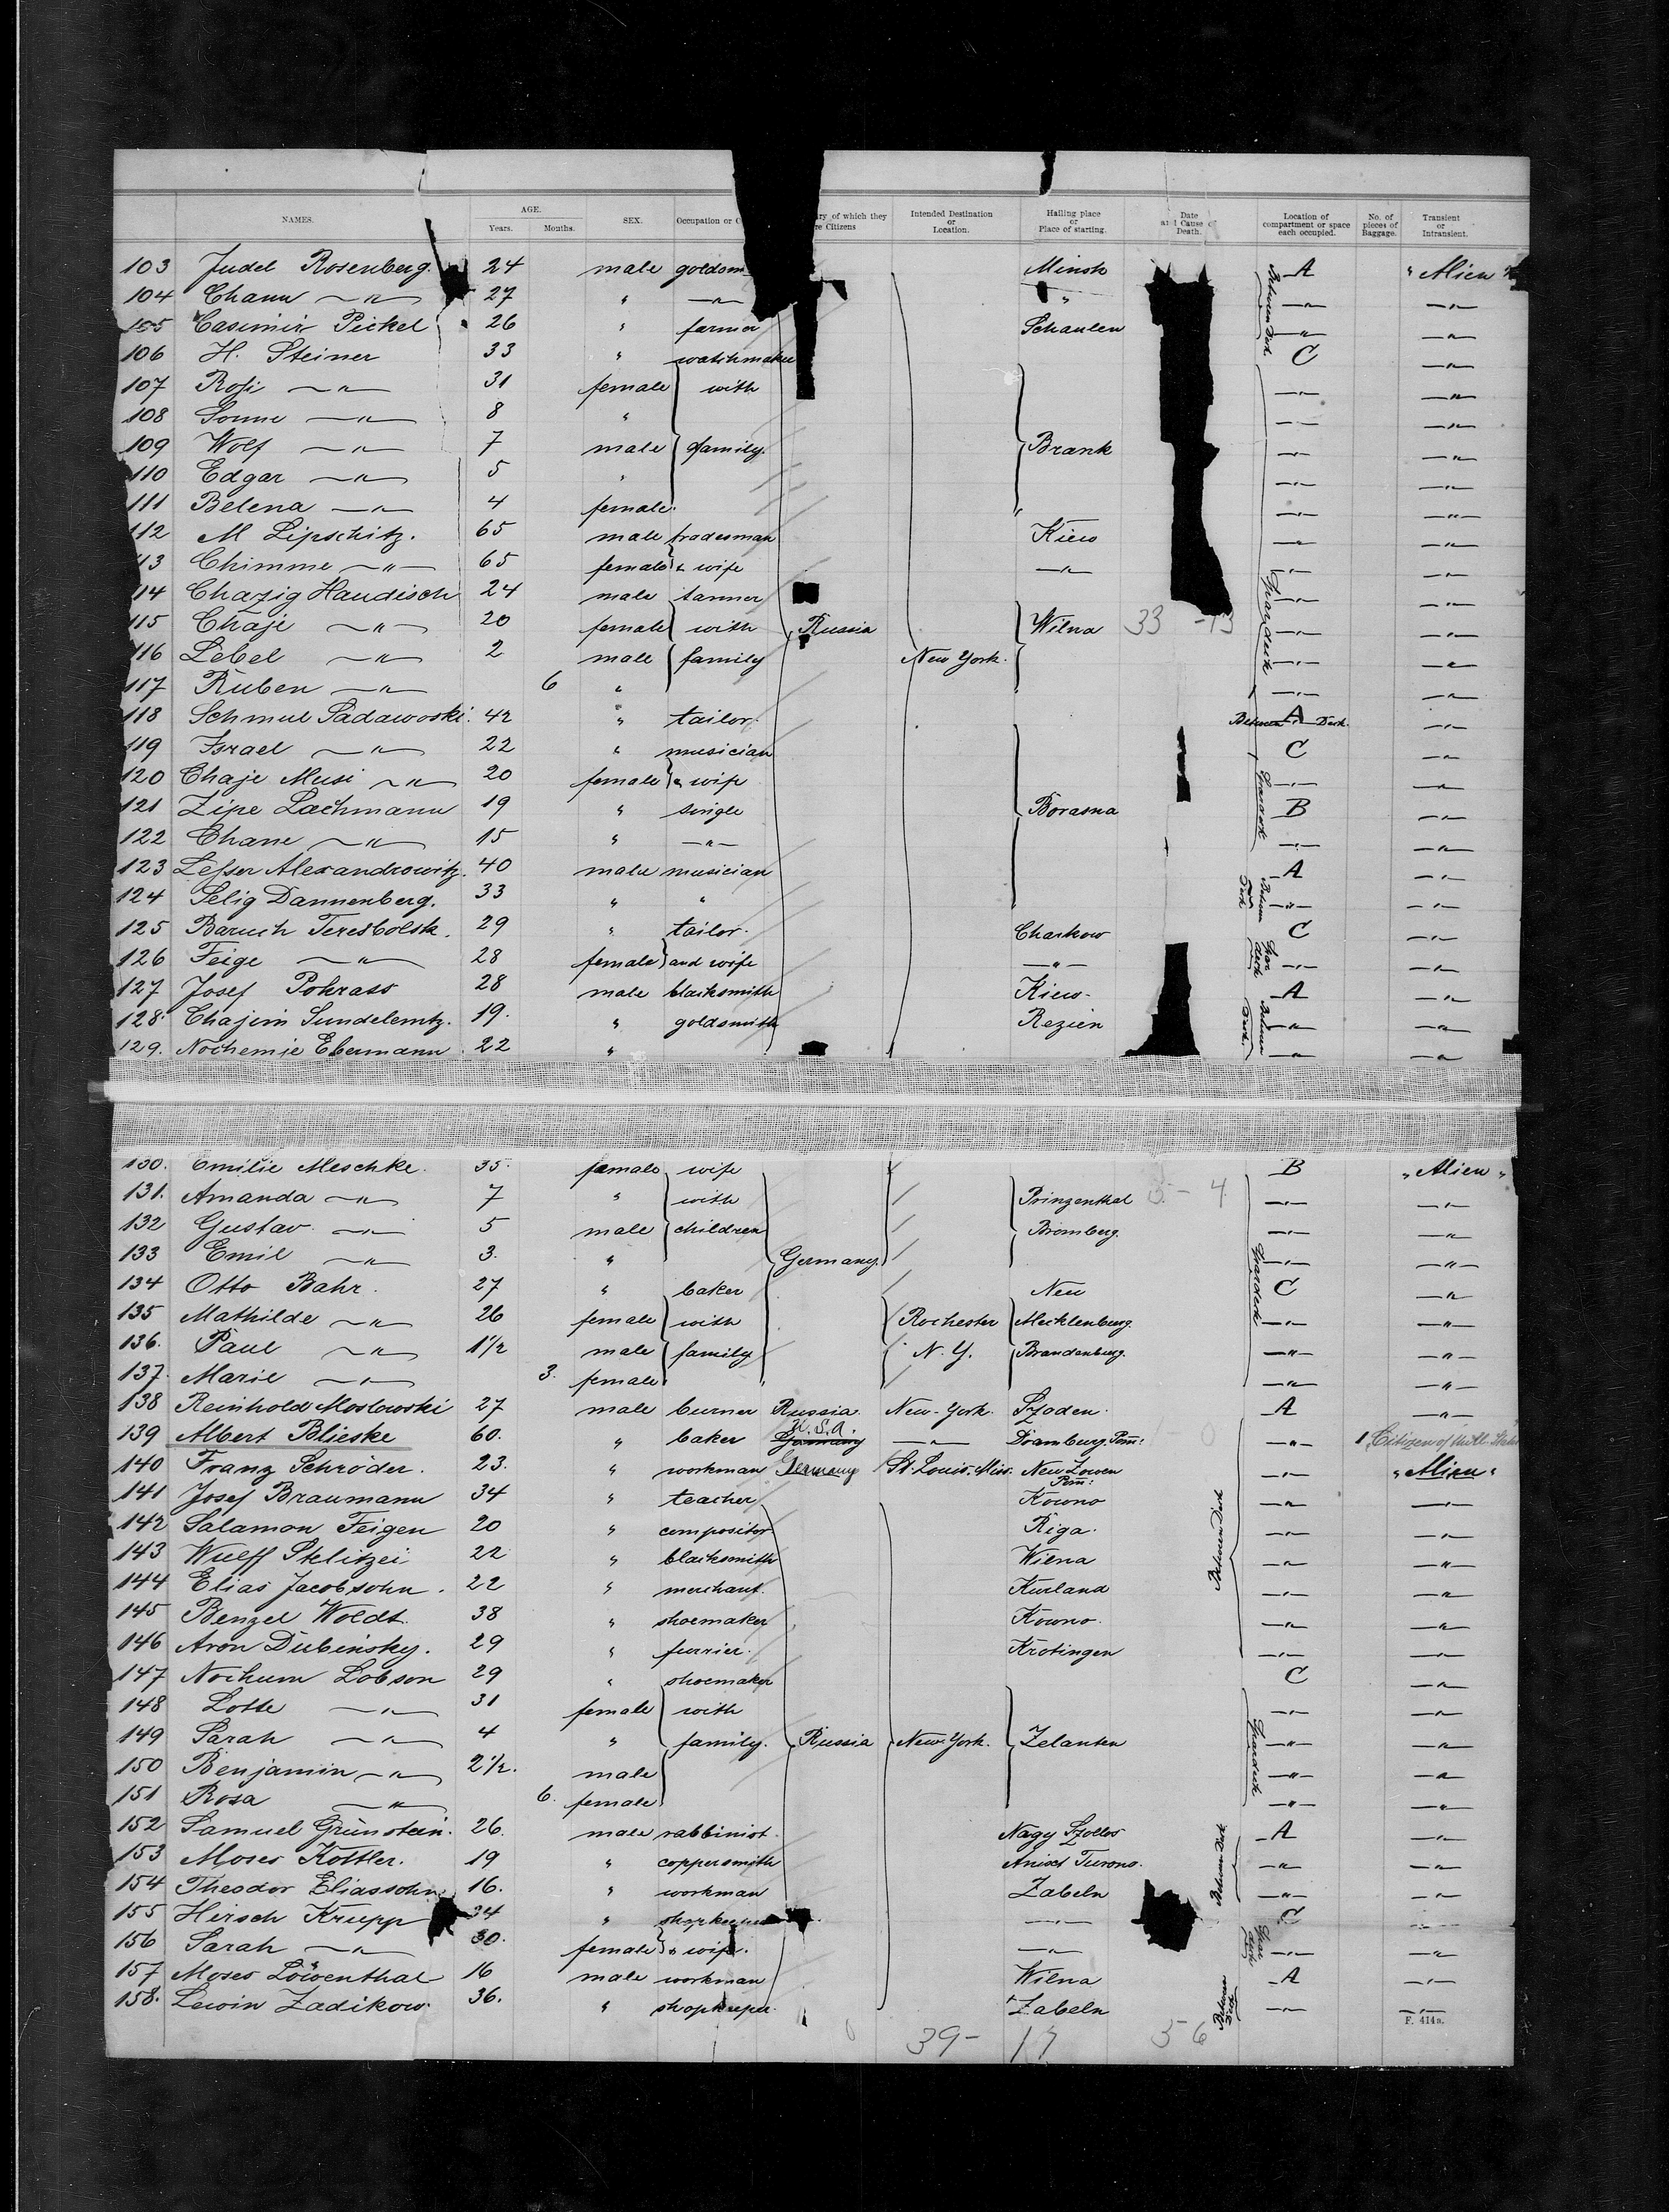 NAMES. AGE. Years. Months. SEX. Occupation or Intended Destination or Location. Hailing place or Place of starting. Date and Cause of Death. Location of compartment or space each occupied. No. of pieces of Baggage. Transient or Intransient.
103 Judel Rosenberg. 24 male Minsk A " Alien
104 Chann —"— 27 " —"— " —"— —"—
105 Casimir Pickel 26 " farmer Schaulen —"— —"—
106 H. Steiner 33 " watchmaker C —"—
107 Rosi —"— 31 female with —"— —"—
108 Sonne —"— 8 " —"— —"—
109 Wolf —"— 7 male family. Brank —"— —"—
110 Edgar —"— 5 " —"— —"—
111 Belena —"— 4 female. —"— —"—
112 M Lipschitz. 65 male tradesman Kiew —"— —"—
13 Chimme —"— 65 female & wife —"— —"— —"—
14 Chazig Haudisch 24 male tanner —"— —"—
115 Chaje —"— 20 female with Russia Wilna 33 -13 —"— —"—
116 Lebel —"— 2 male family New York. —"— —"—
117 Ruben —"— 6 " —"— —"—
118 Schmul Padawoski. 42 " tailor. A Between Deck. —"—
119 Israel —"— 22 " musician C —"—
120 Chaje Musi —"— 20 female & wife —"— —"—
121 Zipe Lachmann 19 " single Borasna B —"—
122 Chane —"— 15 " —"— —"— —"—
123 Lesser Alexandrowitz. 40 male musician A —"—
124 Selig Dannenberg. 33 " " —"— —"—
125 Baruch 29 " tailor. Charkow C —"—
126 Feige —"— 28 female and wife —"— —"— —"—
127 Josef Pokrass 28 male blacksmith Kiew. A —"—
128. Chajim 19. " goldsmith Rezien —"— —"—
129. Nochemie Ebermann 22 " —"— —"—
130. Emilie Meschke. 35. female wife B " Alien "
131. Amanda —"— 7 " with Prinzenthal 3 - 4 —"— —"—
132 Gustav. —"— 5 male children Bromberg. —"— —"—
133 Emil —"— 3. " Germany. —"— —"—
134 Otto Bahr. 27 " baker Neu C —"—
135 Mathilde —"— 26 female with Rochester Mecklenburg. —"— —"—
136. Paul —"— 1½ male family N. Y. Brandenburg. —"— —"—
137. Marie —"— 3. female. —"— —"—
138 Reinhold Moslowski 27 male Russia New-York. Szoden. A —"—
139 Albert Blieske 60. " baker U.S.A. Germany —"— Dramburg. Pom: —"— 1 Citizen of
140 Franz Schröder. 23. " workman Germany St. Louis. Miss. New Zowen Pom: —"— " Alien "
141 Josef Braumann 34 " teacher Kowno —"— —"—
142 Salamon Feigen 20 " compositor Riga. —"— —"—
143 Wulff Stelitzei 22 " blacksmith Wilna —"— —"—
144 Elias Jacobsohn. 22 " merchant. Kurland —"— —"—
145 Benzel Woldt. 38 " shoemaker Kowno. —"— —"—
146 Aron Dubinsky. 29 " furrier. Krotingen —"— —"—
147 Nochum Lobson 29 " shoemaker C —"—
148 Lotte —"— 31 female with —"— —"—
149 Sarah —"— 4 " family. Russia New-York. Zelanten —"— —"—
150 Benjamin —"— 2½. male —"— —"—
151 Rosa —"— 6. female —"— —"—
152 Samuel Grünstein. 26. male rabbinist. Nagy Szollos A —"—
153 Moses Kottler. 19 " coppersmith —"— —"—
154 Theodor Eliassohn 16. " workman Zabeln —"— —"—
155 Hirsch Krupp 34 " —"— C —"—
156 Sarah —"— 30. female & wife. —"— —"— —"—
157 Moses Löwenthal 16 male workman Wilna A —"—
158. Lewin Zadikow. 36. " shopkeeper. Zabeln —"— —"—
F. 414a.
39- 17 56